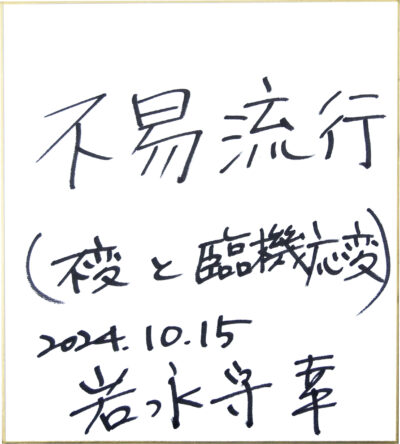 不易流行
(不変と臨機応変)
2024.10.15
岩永守幸